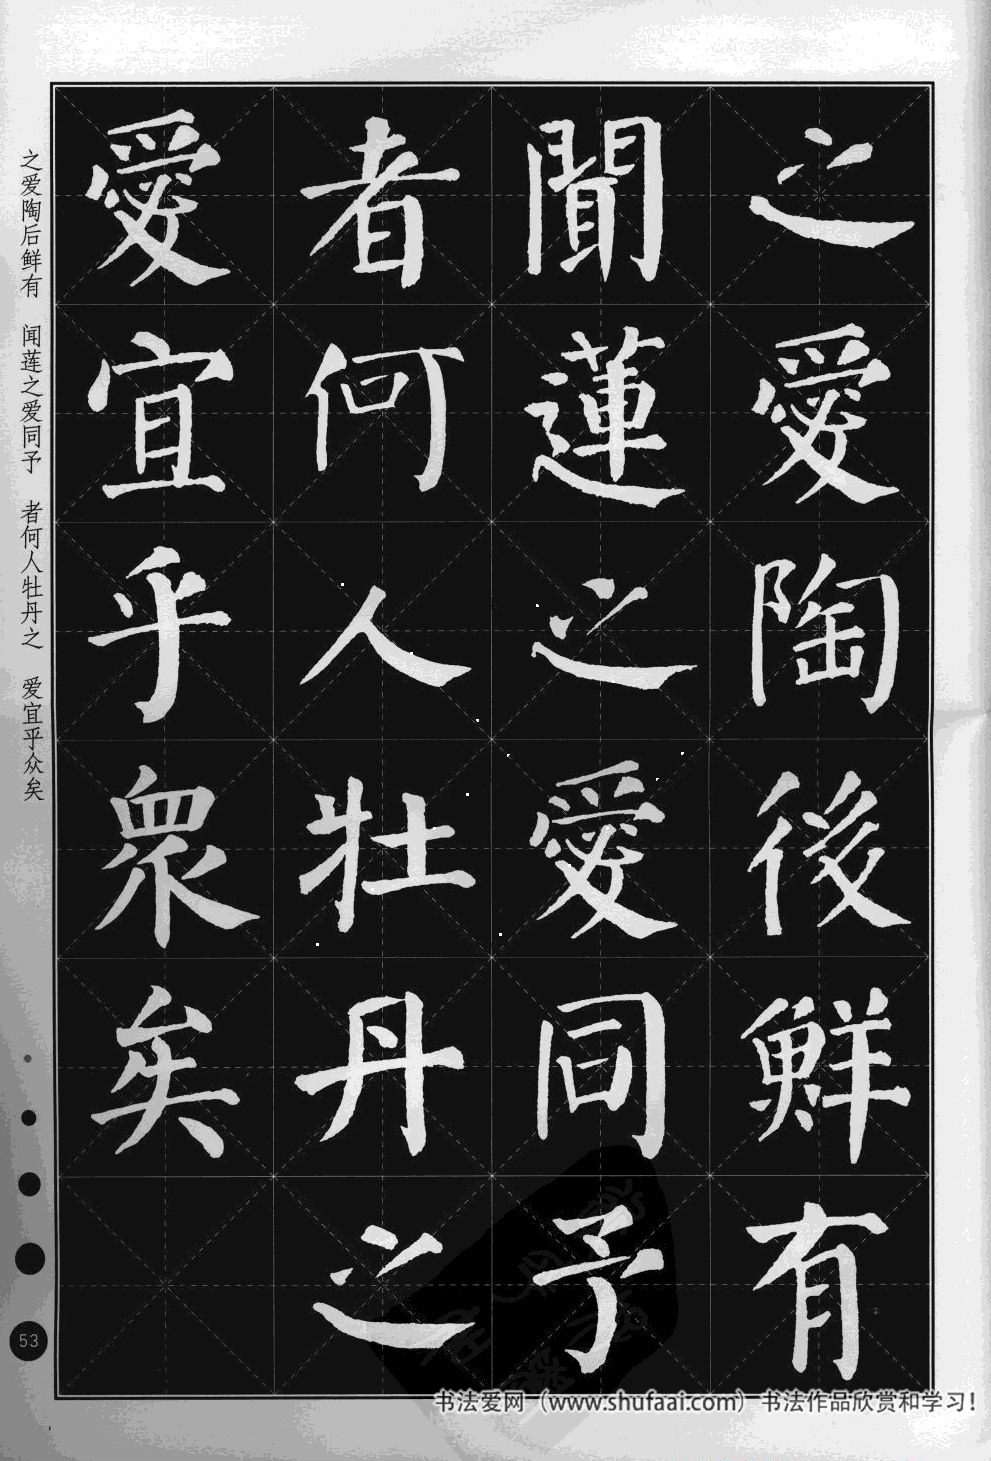 之愛陶後鮮有
聞蓮之愛同予
者何人牡丹之
愛宜乎衆矣
之爱陶后鲜有 闻莲之爱同予 者何人牡丹之 爱宜乎众矣
53
书法爱网（www.shufaai.com）书法作品欣赏和学习！